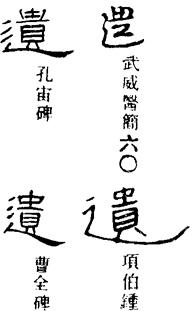 武威醫簡六〇
遺
項伯鍾
遺
孔宙碑
遺
曹全碑